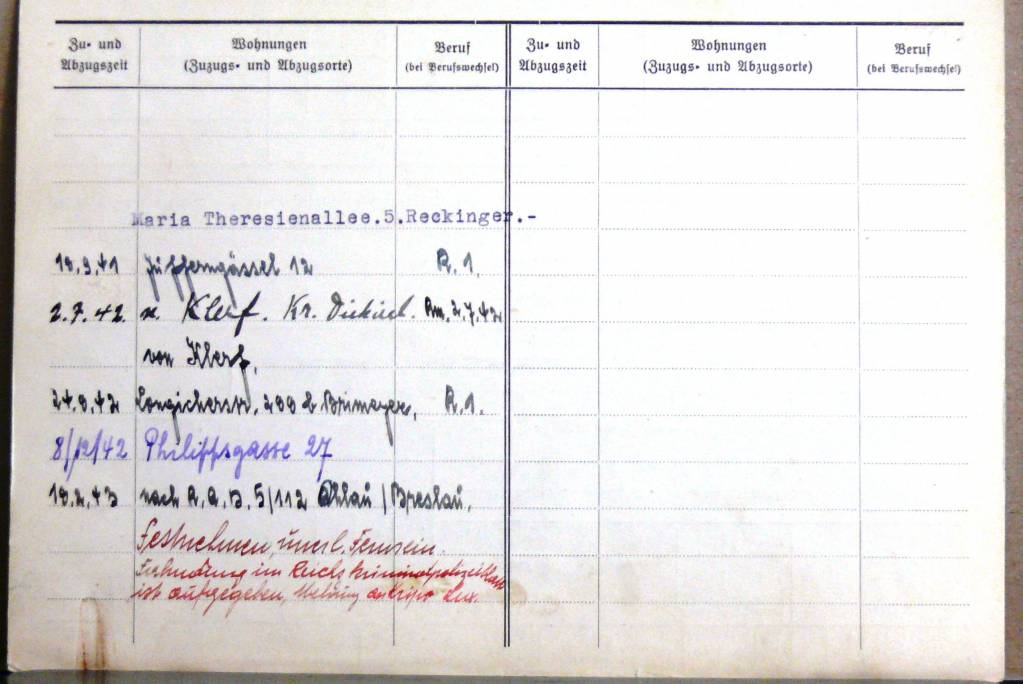 Zu- und Abzugszeit
Wohnungen
(Zuzugs- und Abzugsorte)
Beruf
(bei Berufswechsel)
Zu- und Abzugszeit
Wohnungen
(Zuzugs- und Abzugsorte)
Beruf
(bei Berufswechsel)
Maria Theresienallee.5.Reckinger.-
18.9.41 Jüfferngässel 12 R.1.
2.7.42. n. Klerf. Kr. Diekirch. Am. 2.7.42
von Klerf,
24.9.42 Longicherstr. 200 b Brimeyer, R.1.
8/12/42 Philippsgasse 27
18.2.43 nach R.A.D. 5/112 Ohlau / Breslau.
Festnehmen, unerl. Fernsein.
Fahndung im Reichskriminalpolizeiblatt
ist aufgegeben, Meldung an Kripo Lux.